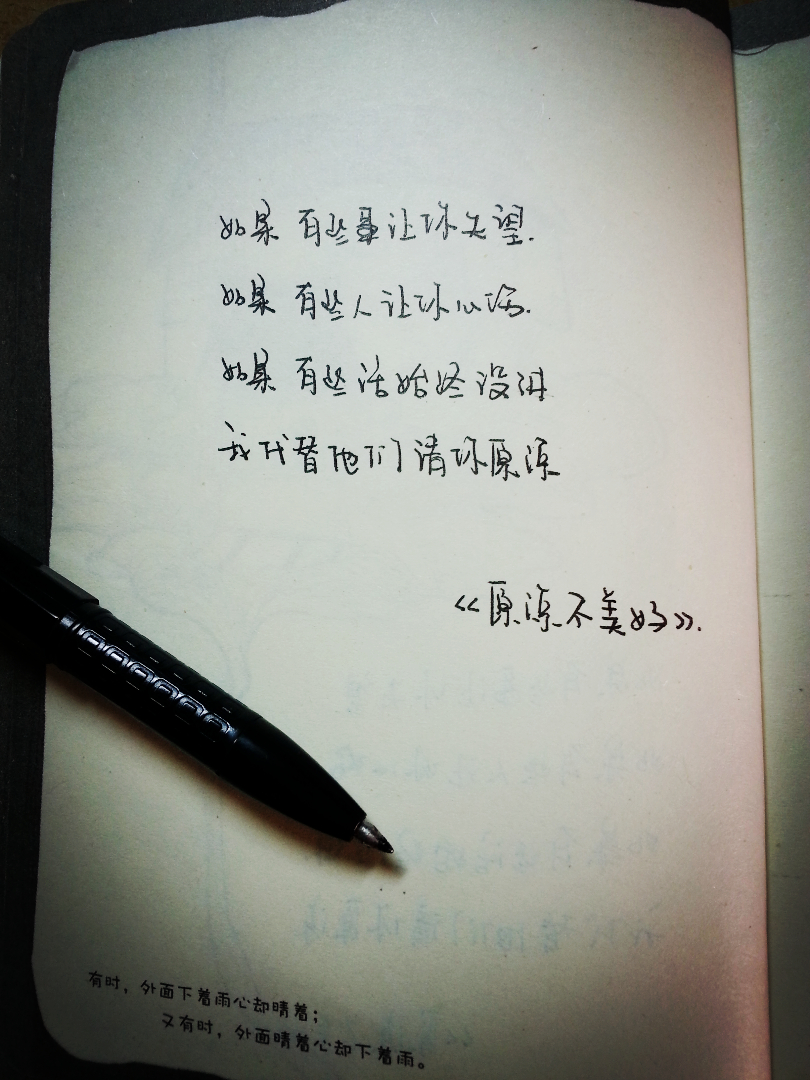 如果有些事让你失望.
如果有些人让你心伤.
如果有些话始终没讲
我代替他们请你原谅
《原谅不美好》.
有时，外面下着雨心却晴着；
又有时，外面晴着心却下着雨。